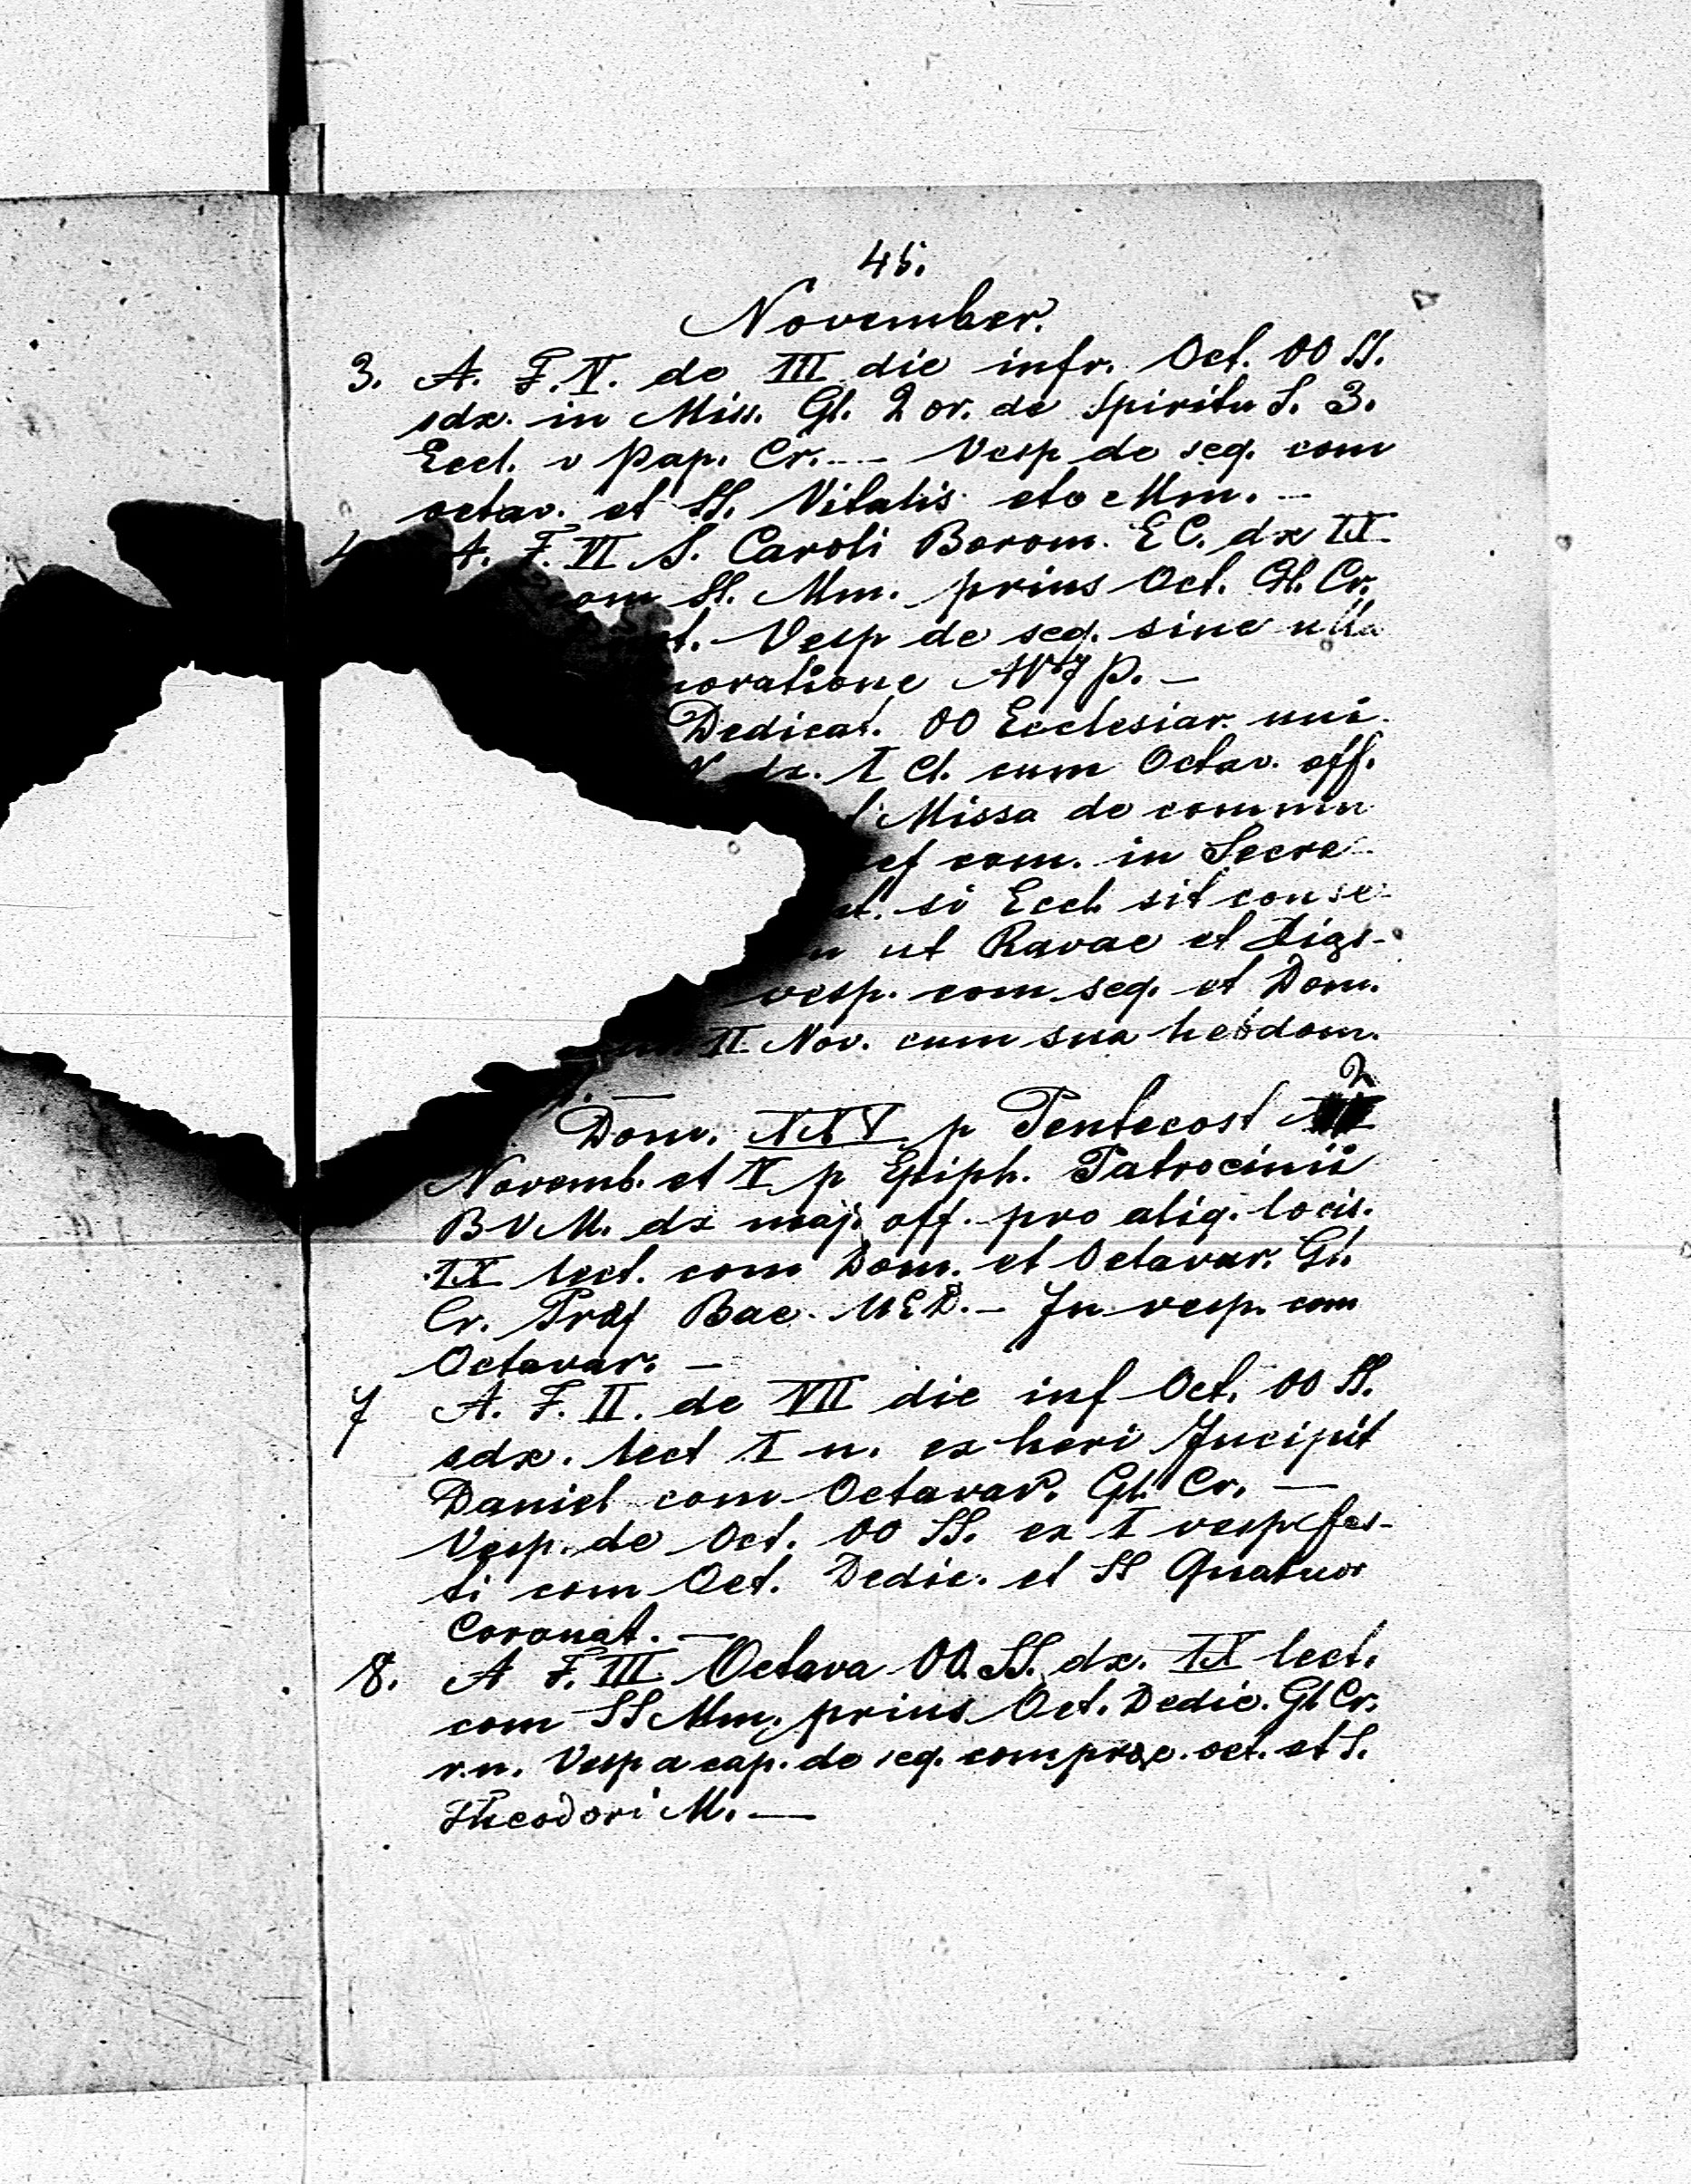 45.
November.
3. A. F. V. de III die infr. Oct. OO SS.
sdx. in Miss. Gl. 2 or. de Spiritu S. 3.
Eccl. v Pap. Cr. — Vesp de seq. com
octav. et SS. Vitalis etc Mm. —
4 A. F. VI S. Caroli Borom. EC. dx IX
om SS. Mm. prius Oct. Gl. Cr.
t. Vesp de seq. sine ulla
moratione
Dedicat. OO Ecclesiar. uni.
dx. I cl. cum Octav. off.
Missa de commun
et com. in Secre-
si Eccl. sit conse-
ut Ravae et
vesp. com seq. et Dom.
II Nov. cum sua hebdom.
Dom. XXV p Pentecost 2
Novemb. et V p Epiph. Patrocinii
BVM. dx maj. off. pro aliq. locis.
IX lect. com Dom. et Octavar. Gl.
Cr. Præf Bae. MED. — In vesp. com
Octavar. —
7 A. F. II. de VII die inf Oct. OO SS.
sdx. lect I n. ex heri Incipit
Daniel com Octavar. Gl. Cr. —
Vesp. de Oct. OO SS. ex I vesp fes-
ti com Oct. Dedic. et SS Quatuor
Coronat. —
8. A F. III. Octava OO. SS. dx. IX lect.
com SS Mm. prius Oct. Dedic. Gl Cr.
r.n. Vesp a cap. de seq. com præc. oct. et S.
Theodori M. —